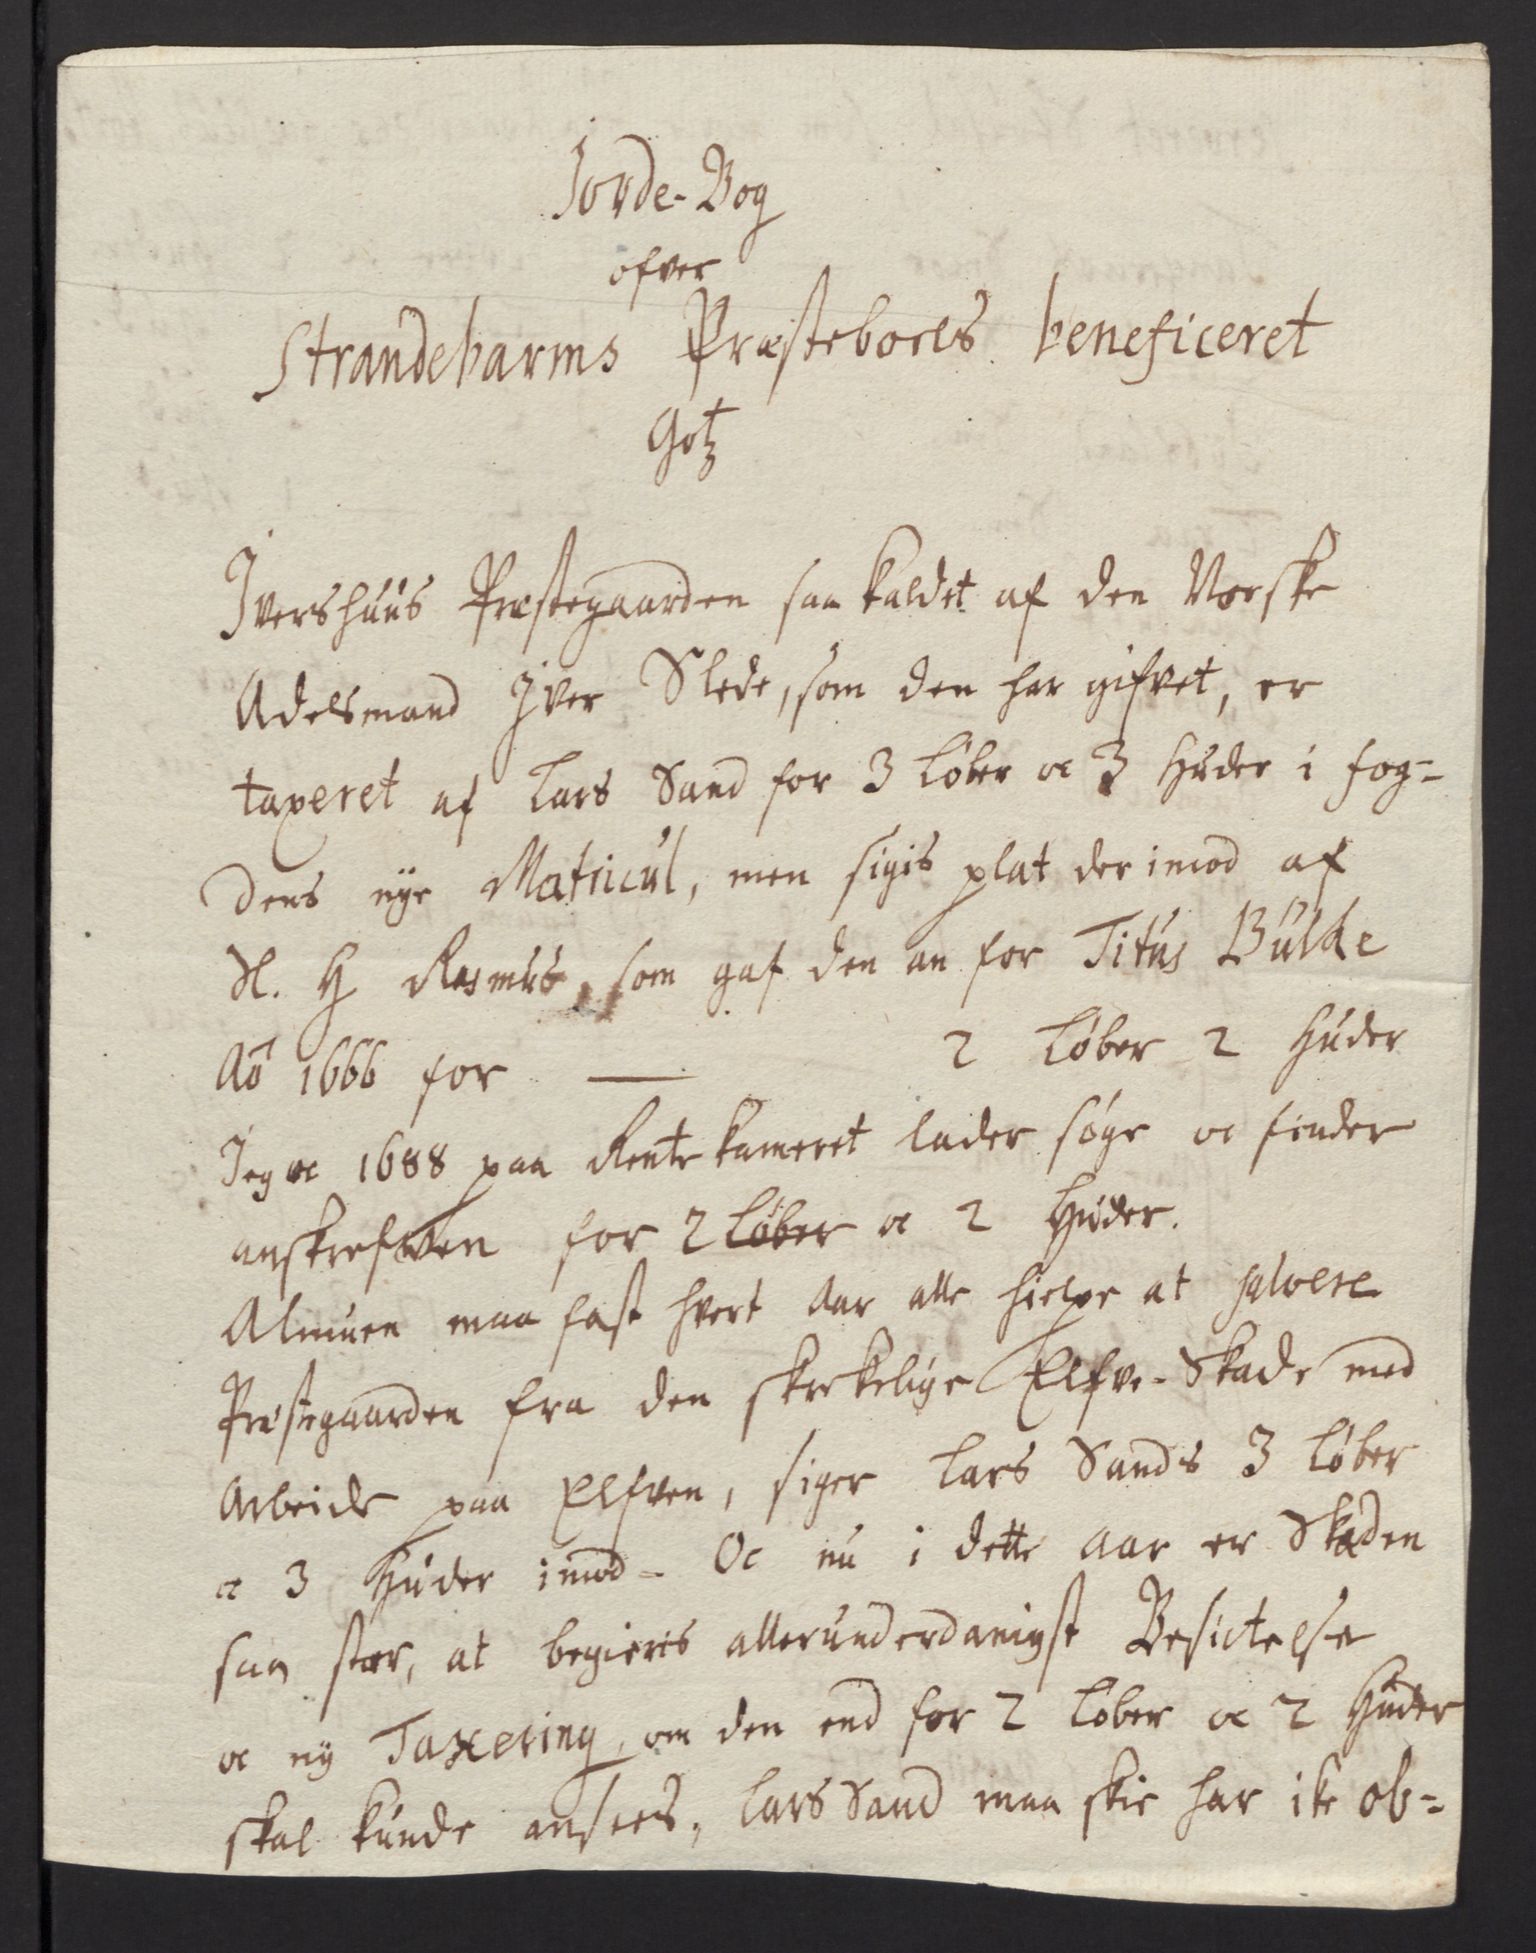 Jorde-Bog
ofver
Strandebarms Præsteboels beneficeret
Gotz
Ivershuus Præstegaarden saa kaldet af den Norske
Adelsmand Iver Slede, som den har gifvet, er
taxeret af Lars Sand for 3 Løber oc 3 Huder i fog-
dens nye Matricul, men sigis plat der imod af
Sl. H Rasmus, som gaf den an for Titus Bülche
Aō 1666 for — 2 Løber 2 Huder
Jeg oc 1688 paa Rentekameret lader søge oc finder
anskrefven for 2 Løber oc 2 Huder.
Almuen maa fast hvert Aar alle hielpe at salvere
Præstegaarden fra den skrekelige Elfve-Skade med
Arbeide paa Elfven, siger Lars Sands 3 Løber
oc 3 Huder imod - Oc nu i dette Aar er Skaden
saa stor, at begieres allerunderdanigst Besictelse
oc ny Taxering, om den end for 2 Løber oc 2 Huder
skal kunde ansees, Lars Sand maa skie har ike ob-